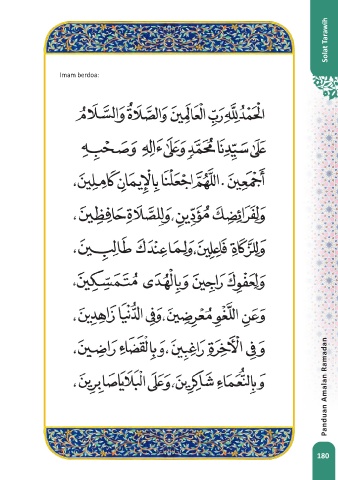 Solat Tarawih
Imam berdoa:
الْحَمْدُ لِلَّهِ رَبِّ الْعَالَمِينَ وَالصَّلَاةُ وَالسَّلَامُ
عَلَىٰ سَيِّدِنَا مُحَمَّدٍ وَعَلَىٰ ءَالِهِ وَصَحْبِهِ
أَجْمَعِينَ. اللَّهُمَّ اجْعَلْنَا بِالْإِيمَانِ كَامِلِينَ،
وَلِفَرَائِضِكَ مُؤَدِّينَ، وَلِلصَّلَاةِ حَافِظِينَ،
وَلِلزَّكَاةِ فَاعِلِينَ، وَلِمَا عِنْدَكَ طَالِبِينَ،
وَلِعَفْوِكَ رَاجِينَ وَبِالْهُدَى مُتَمَسِّكِينَ،
وَعَنِ اللَّغْوِ مُعْرِضِينَ، وَفِي الدُّنْيَا زَاهِدِينَ،
وَفِي الْأَخِرَةِ رَاغِبِينَ، وَبِالْقَضَاءِ رَاضِينَ،
وَبِالنَّعْمَاءِ شَاكِرِينَ، وَعَلَى الْبَلَايَا صَابِرِينَ،
Panduan Amalan Ramadan
180